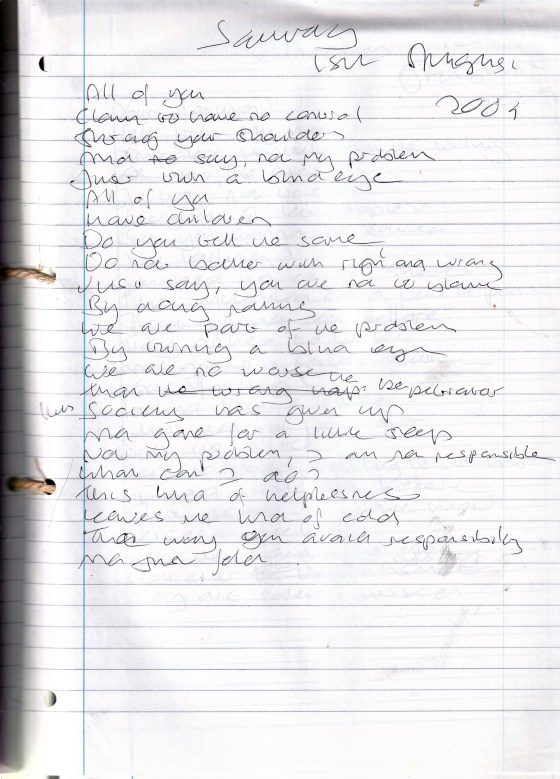 Sunday
1st August
2004
All of you
Claim to have no control
Shrug your shoulders
And to say, not my problem
Just turn a blind eye
All of you
have children
Do you tell me same
Do not bother with right and wrong
Just say, you are not to blame
By doing nothing
We are part of the problem
By turning a blind eye
We are no worse
than the wrong the perpetrator
this Society has given up
And gone for a little sleep
Not my problem, I am not responsible
What can I do?
This kind of helplessness
Leaves me kind of cold
That way you avoid responsibility
And just fold